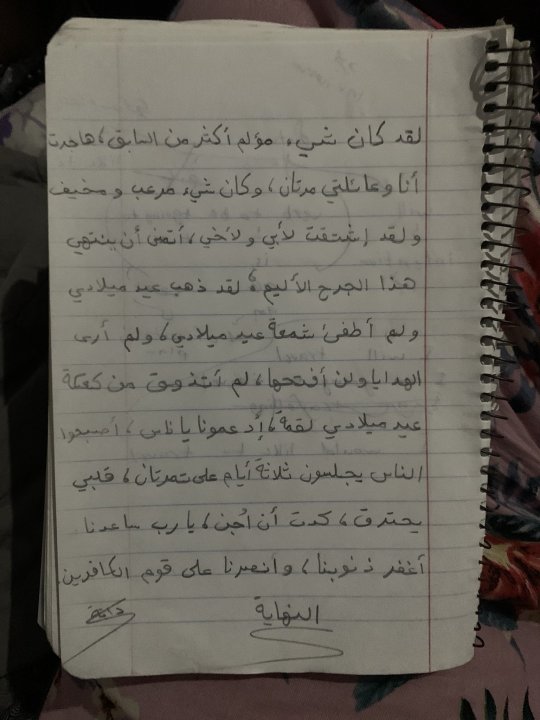 لقد كان شيء مؤلم أكثر من السابق، هاجرت
أنا وعائلتي مرتان، وكان شيء مرعب ومخيف
ولقد إشتقت لأبي ولأخي، أتمنى أن ينتهي
هذا الجرح الأليم، لقد ذهب عيد ميلادي
ولم أطفئ شمعة عيد ميلادي، ولم أرى
الهدايا ولن أفتحها، لم أتذوق من كعكة
عيد ميلادي لقمة، إدعمونا يا ناس، أصبحوا
الناس يجلسون ثلاثة أيام على تمرتان، قلبي
يحترق، كدت أن أجن، يارب ساعدنا
أغفر ذنوبنا، وانصرنا على قوم الكافرين.
النهاية